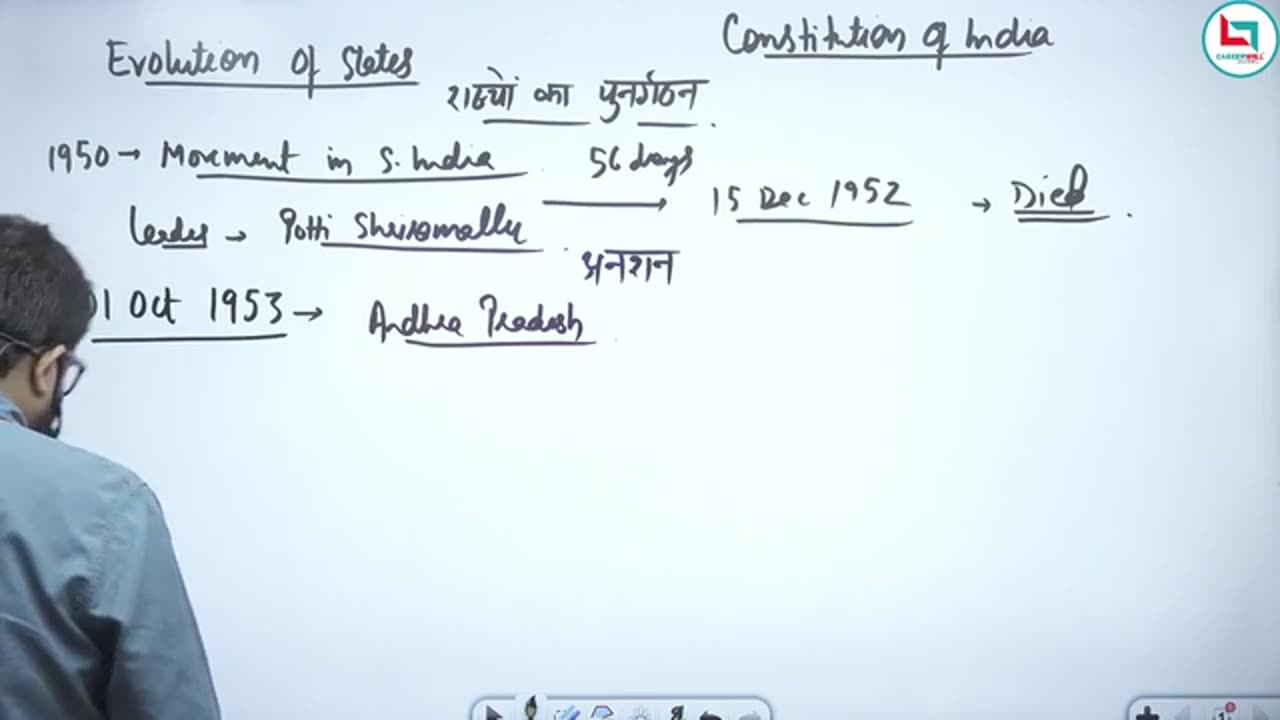 Constitution of India
Evolution of States
राज्यों का पुनर्गठन
1950 → Movement in S. India 56 days
15 Dec 1952 → Died
leader → Potti Shriramallu
अनशन
01 Oct 1953 → Andhra Pradesh
CAREERWILL